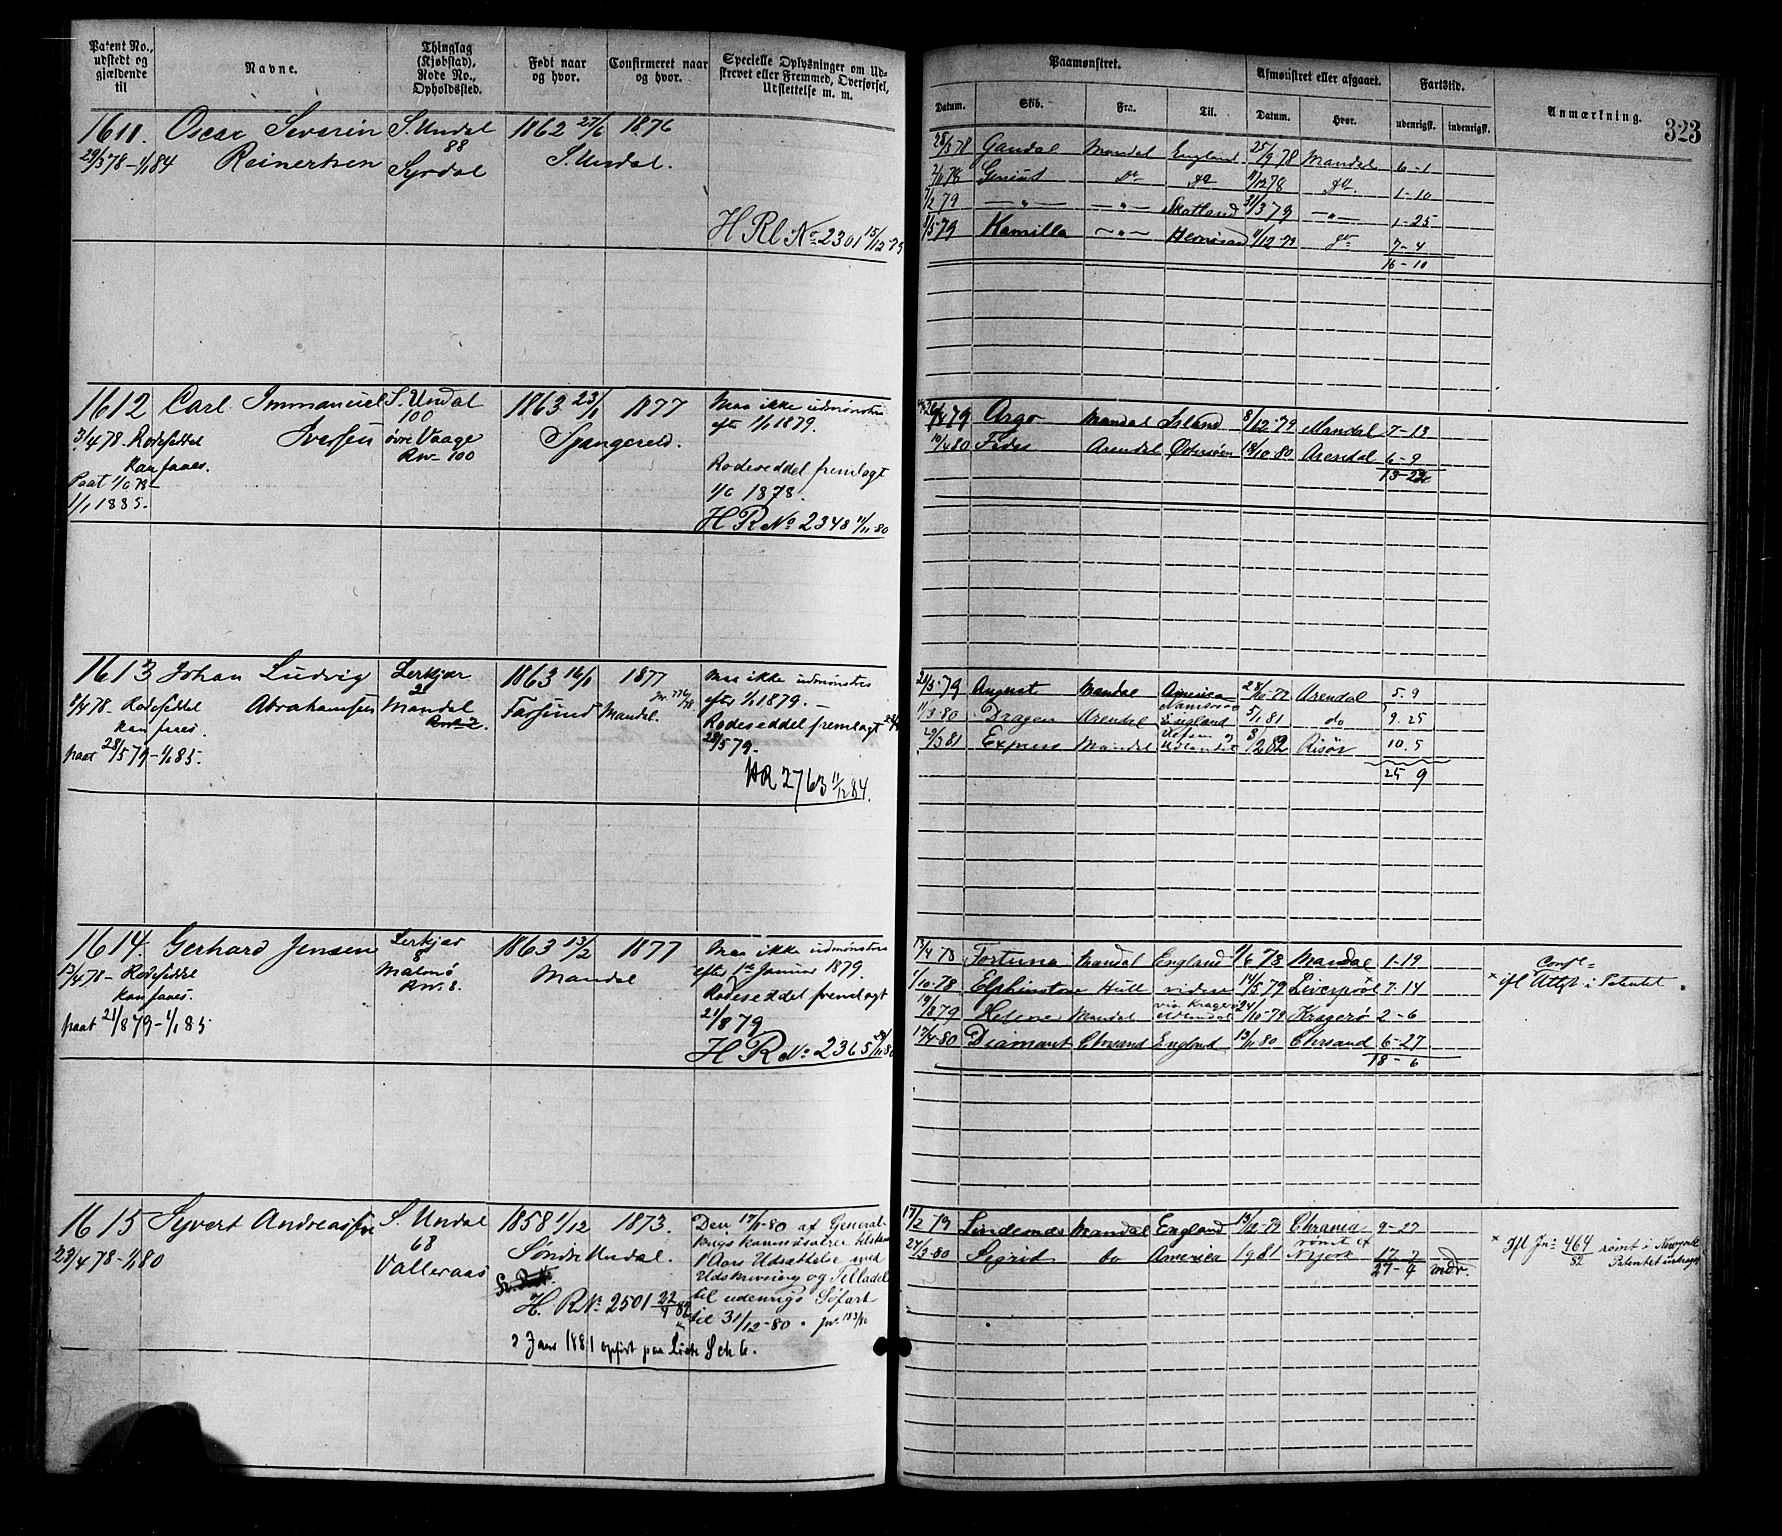 Patent No., udstedt og gjældende til
Navne.
Thinglag (Kjøbstad), Rode No., Opholdssted.
Født naar og hvor.
Confirmeret naar og hvor.
Specielle Oplysninger om Udskrevet eller Fremmed, Overførsel, Udslettelse m. m.
Paamønstret.
Afmønstret eller afgaaet.
Fartstid.
Anmærkning.
323
Datum.
Skib.
Fra.
Til.
Datum.
Hvor.
udenrigsk.
indenrigsk.
1611. Oscar Severin S. Undal 1862 27/6 1876
29/5 78 - 1/1 84 Reinertsen 88 S. Undal.
Syrdal
H Rl No 2301 15/12-79
28/5 78 Gandal Mandal England 25/9 78 Mandal 6-1
Genius Do Do 11/12 78 Do 1-10
1/2 79 — " — — " — Skotland 31/3 79 — " — 1-25
5-79 Kamilla — " — 11/12-79 do 7-4
16-10
1612 Carl Immanuel S. Undal 1863 23/1 1877 Maa ikke udmønstres
3/4 78 - Rodeseddel Iversen 100 Spangereid. efter 1/1 1879.
kan faaes. øvre Vaage
Rn- 100 Rodeseddel fremlagt
1/1 1885. 1/6 1878.
H R No 2348 11/11 80
79 Argo Mandal Island 8/12-79 Mandal 7-13
10/4 80 Fides Arendal Østersøen 18/10 80 Arendal 6-9
13-22
1613 Johan Ludvig Lerkjær 1863 16/1 1877 Maa ikke udmønstres
8/4 78 - Rodeseddel Abrahamsen 2 Farsund Mandal. efter 1/1 1879. -
kan faaes. Mandal Rodeseddel fremlagt
paat 28/5 79 - 1/1 85. 28/5 79.
HR 2763 11/12 84.
21/5-79 August Mandal America Arendal 5.9
11/3-80 Dragen Arendal England 5/1 81 do 9.25
29/3 81 Express Mandal 8/2 82 Risør 10.5
25 9
1614. Gerhard Jensen Lerkjær 1863 13/2 1877 Maa ikke udmønstres
13/4 78 - Rodeseddel 8 Mandal efter 1ste Januar 1879.
kan faaes. Malmø Rodeseddel fremlagt
paat 21/8 79 - 1/1 85 Rn. 8. 21/8 79
H R No 2365
13/4 78 Fortuna Mandal England Mandal 1-19
1/10-78 Elphinstone Hull videre 14/5 79 Liverpool 7-14
19/8 79 Helene Mandal via Kragerø Kragerø 2-6
17/4-80 Diamant Chrsand England 13/11 80 Chrsand 6-27
18-6
1615 Syvert Andreassen S. Undal 1858 1/12 1873. Den 17/1-80 af General-
23/4 78 - 1/1 80 68 Søndre Undal. krigskommissariatet tilstaaet
Valleraas 1 Aars Udsættelse med
Udskrivning og Tilladelse
H. R No 2501 22/4 82 til udenrigs Søfart
til 31/12-80.
2 Jans 1881 opført paa Liste
17/2 79 Lindesnes Mandal England 13/12-79 Chrania 9-27
27/3-80 Sigrid do America 1981 rømt N.York 17 7
27-4 mdr.
× Ifl Jn: 464/82 rømt i Newyork